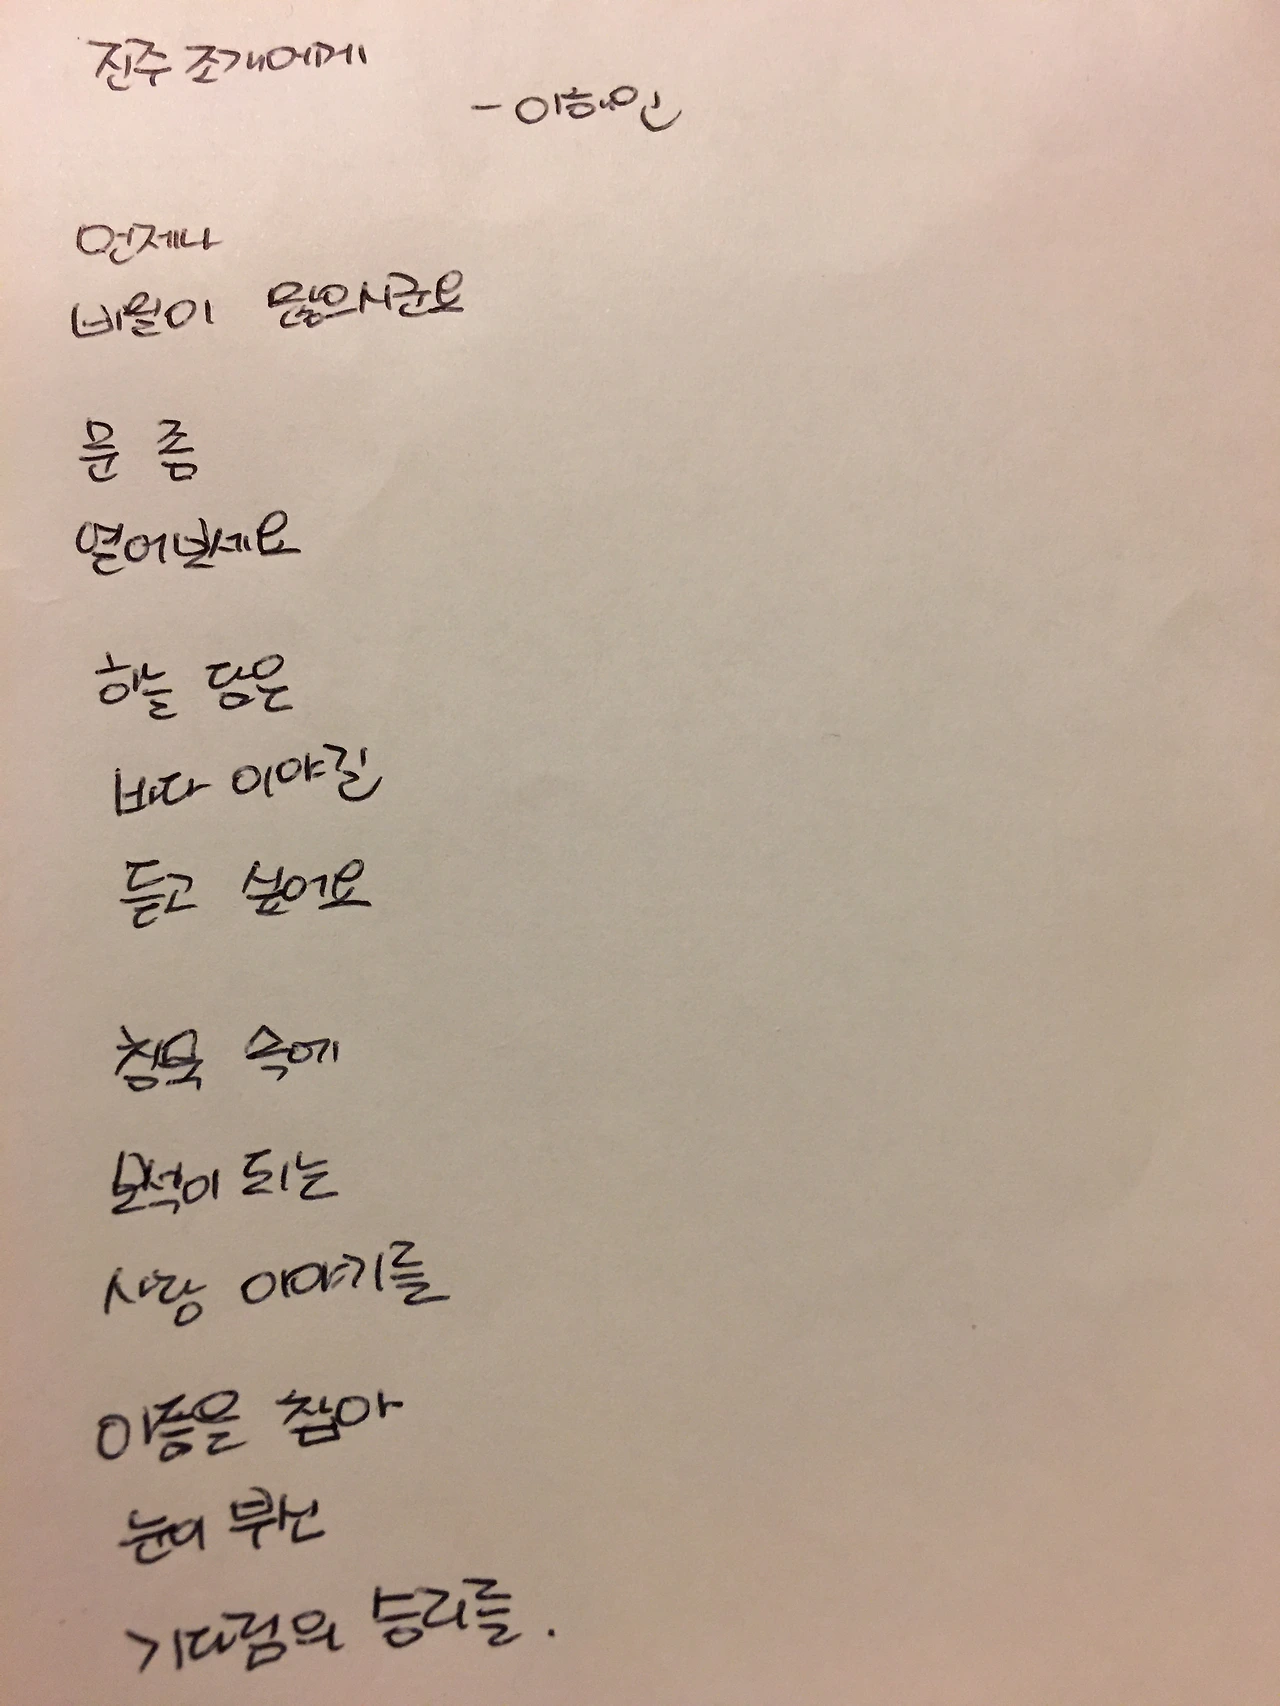 진주 조개에게
- 이해인
언제나
비밀이 많으시군요
문 좀
열어보세요
하늘 담은
바다 이야길
듣고 싶어요
침묵 속에
보석이 되는
사랑 이야기를
아픔을 참아
눈이 부신
기다림의 승리를.